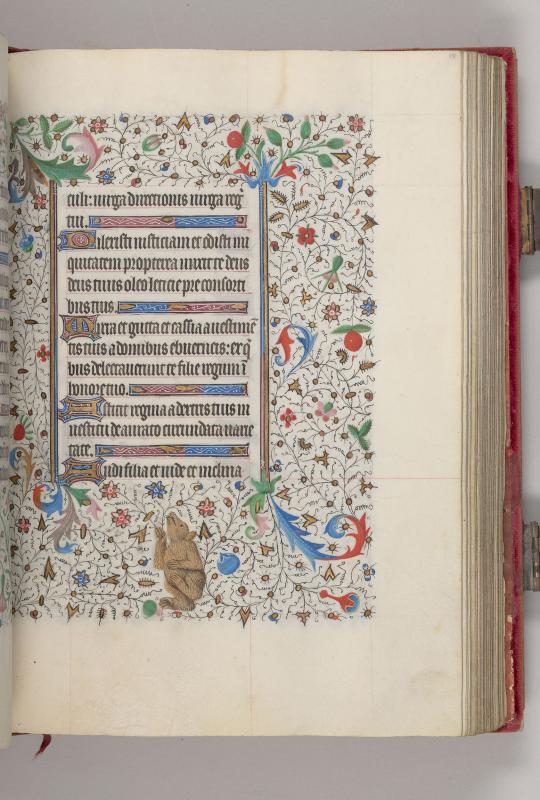 culi: uirga directionis uirga reg
tui.
Dilexisti iusticiam et odisti ini
quitatem propterea unxit te deus
deus tuus oleo leticie pre consorti
bus tuis.
Mirra et gutta et cassia a uestimen
tis tuis a domibus eburneis: ex q
bus delectauerunt te filie regum i
honore tuo.
Astitit regina a dextris tuis in
uestitu deaurato circumdata uarie
tate.
Audi filia et uide et inclina